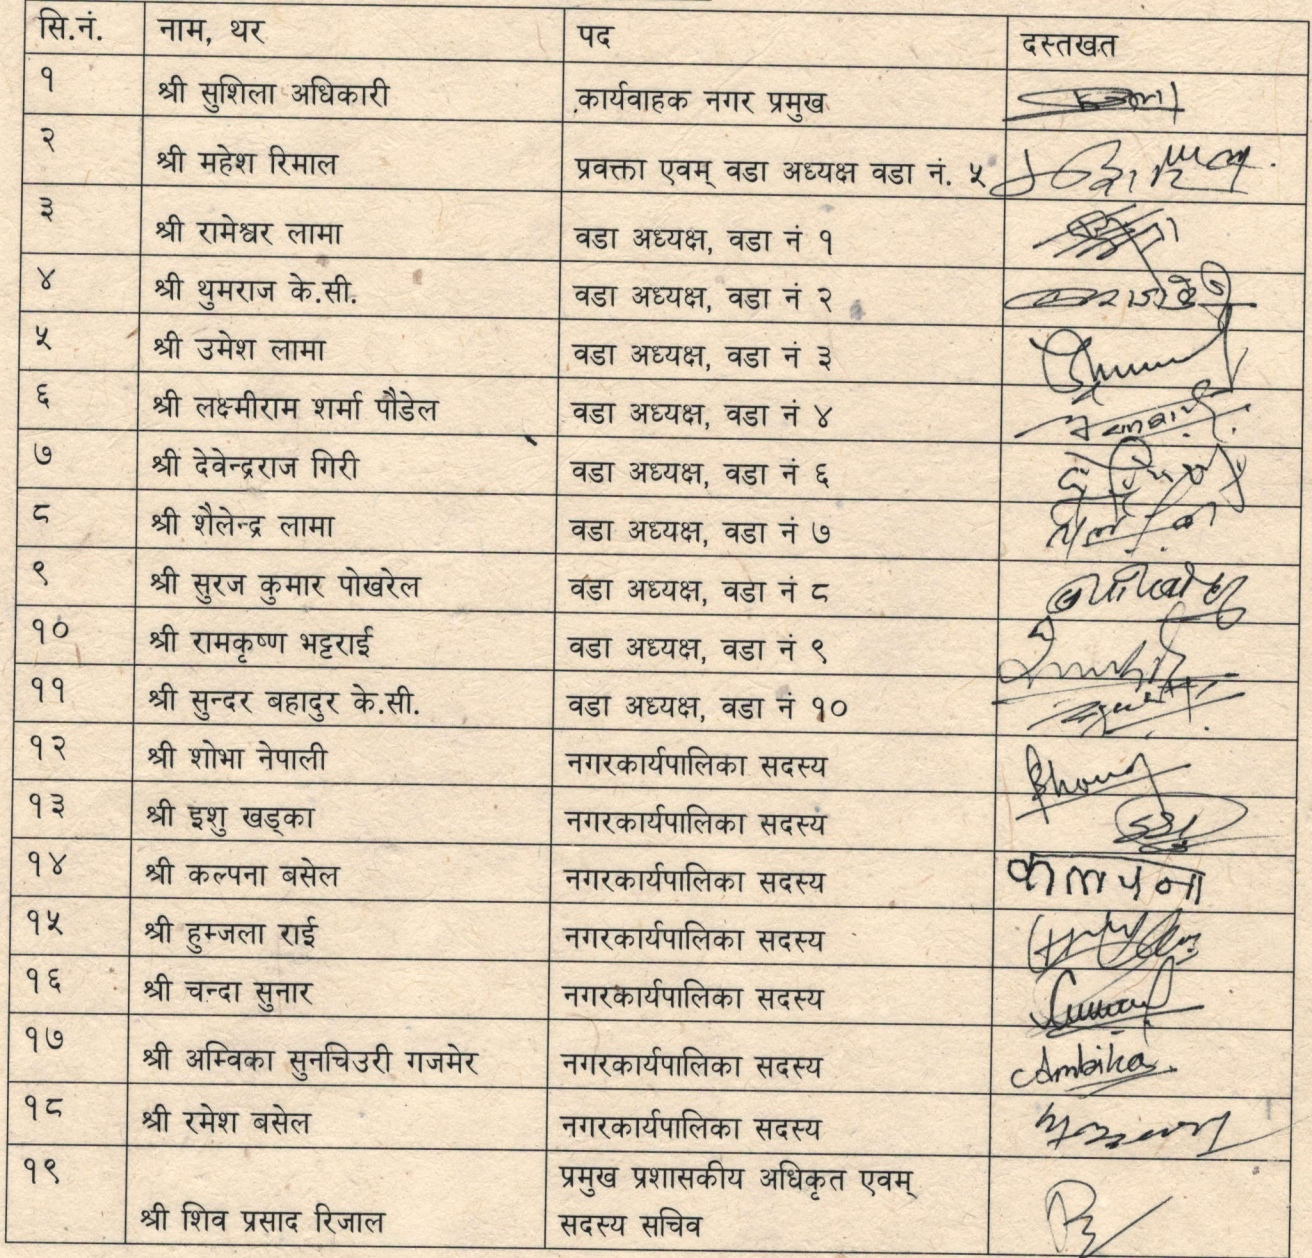 सि.नं. नाम, थर पद दस्तखत
१ श्री सुशिला अधिकारी कार्यवाहक नगर प्रमुख
२ श्री महेश रिमाल प्रवक्ता एवम् वडा अध्यक्ष वडा नं. ५
३ श्री रामेश्वर लामा वडा अध्यक्ष, वडा नं १
४ श्री थुमराज के.सी. वडा अध्यक्ष, वडा नं २
५ श्री उमेश लामा वडा अध्यक्ष, वडा नं ३
६ श्री लक्ष्मीराम शर्मा पौडेल वडा अध्यक्ष, वडा नं ४
७ श्री देवेन्द्रराज गिरी वडा अध्यक्ष, वडा नं ६
८ श्री शैलेन्द्र लामा वडा अध्यक्ष, वडा नं ७
९ श्री सुरज कुमार पोखरेल वडा अध्यक्ष, वडा नं ८
१० श्री रामकृष्ण भट्टराई वडा अध्यक्ष, वडा नं ९
११ श्री सुन्दर बहादुर के.सी. वडा अध्यक्ष, वडा नं १०
१२ श्री शोभा नेपाली नगरकार्यपालिका सदस्य
१३ श्री इशु खड्का नगरकार्यपालिका सदस्य
१४ श्री कल्पना बसेल नगरकार्यपालिका सदस्य कल्पना
१५ श्री हुम्जला राई नगरकार्यपालिका सदस्य
१६ श्री चन्दा सुनार नगरकार्यपालिका सदस्य
१७ श्री अम्विका सुनचिउरी गजमेर नगरकार्यपालिका सदस्य Ambika
१८ श्री रमेश बसेल नगरकार्यपालिका सदस्य
१९ श्री शिव प्रसाद रिजाल प्रमुख प्रशासकीय अधिकृत एवम्
सदस्य सचिव